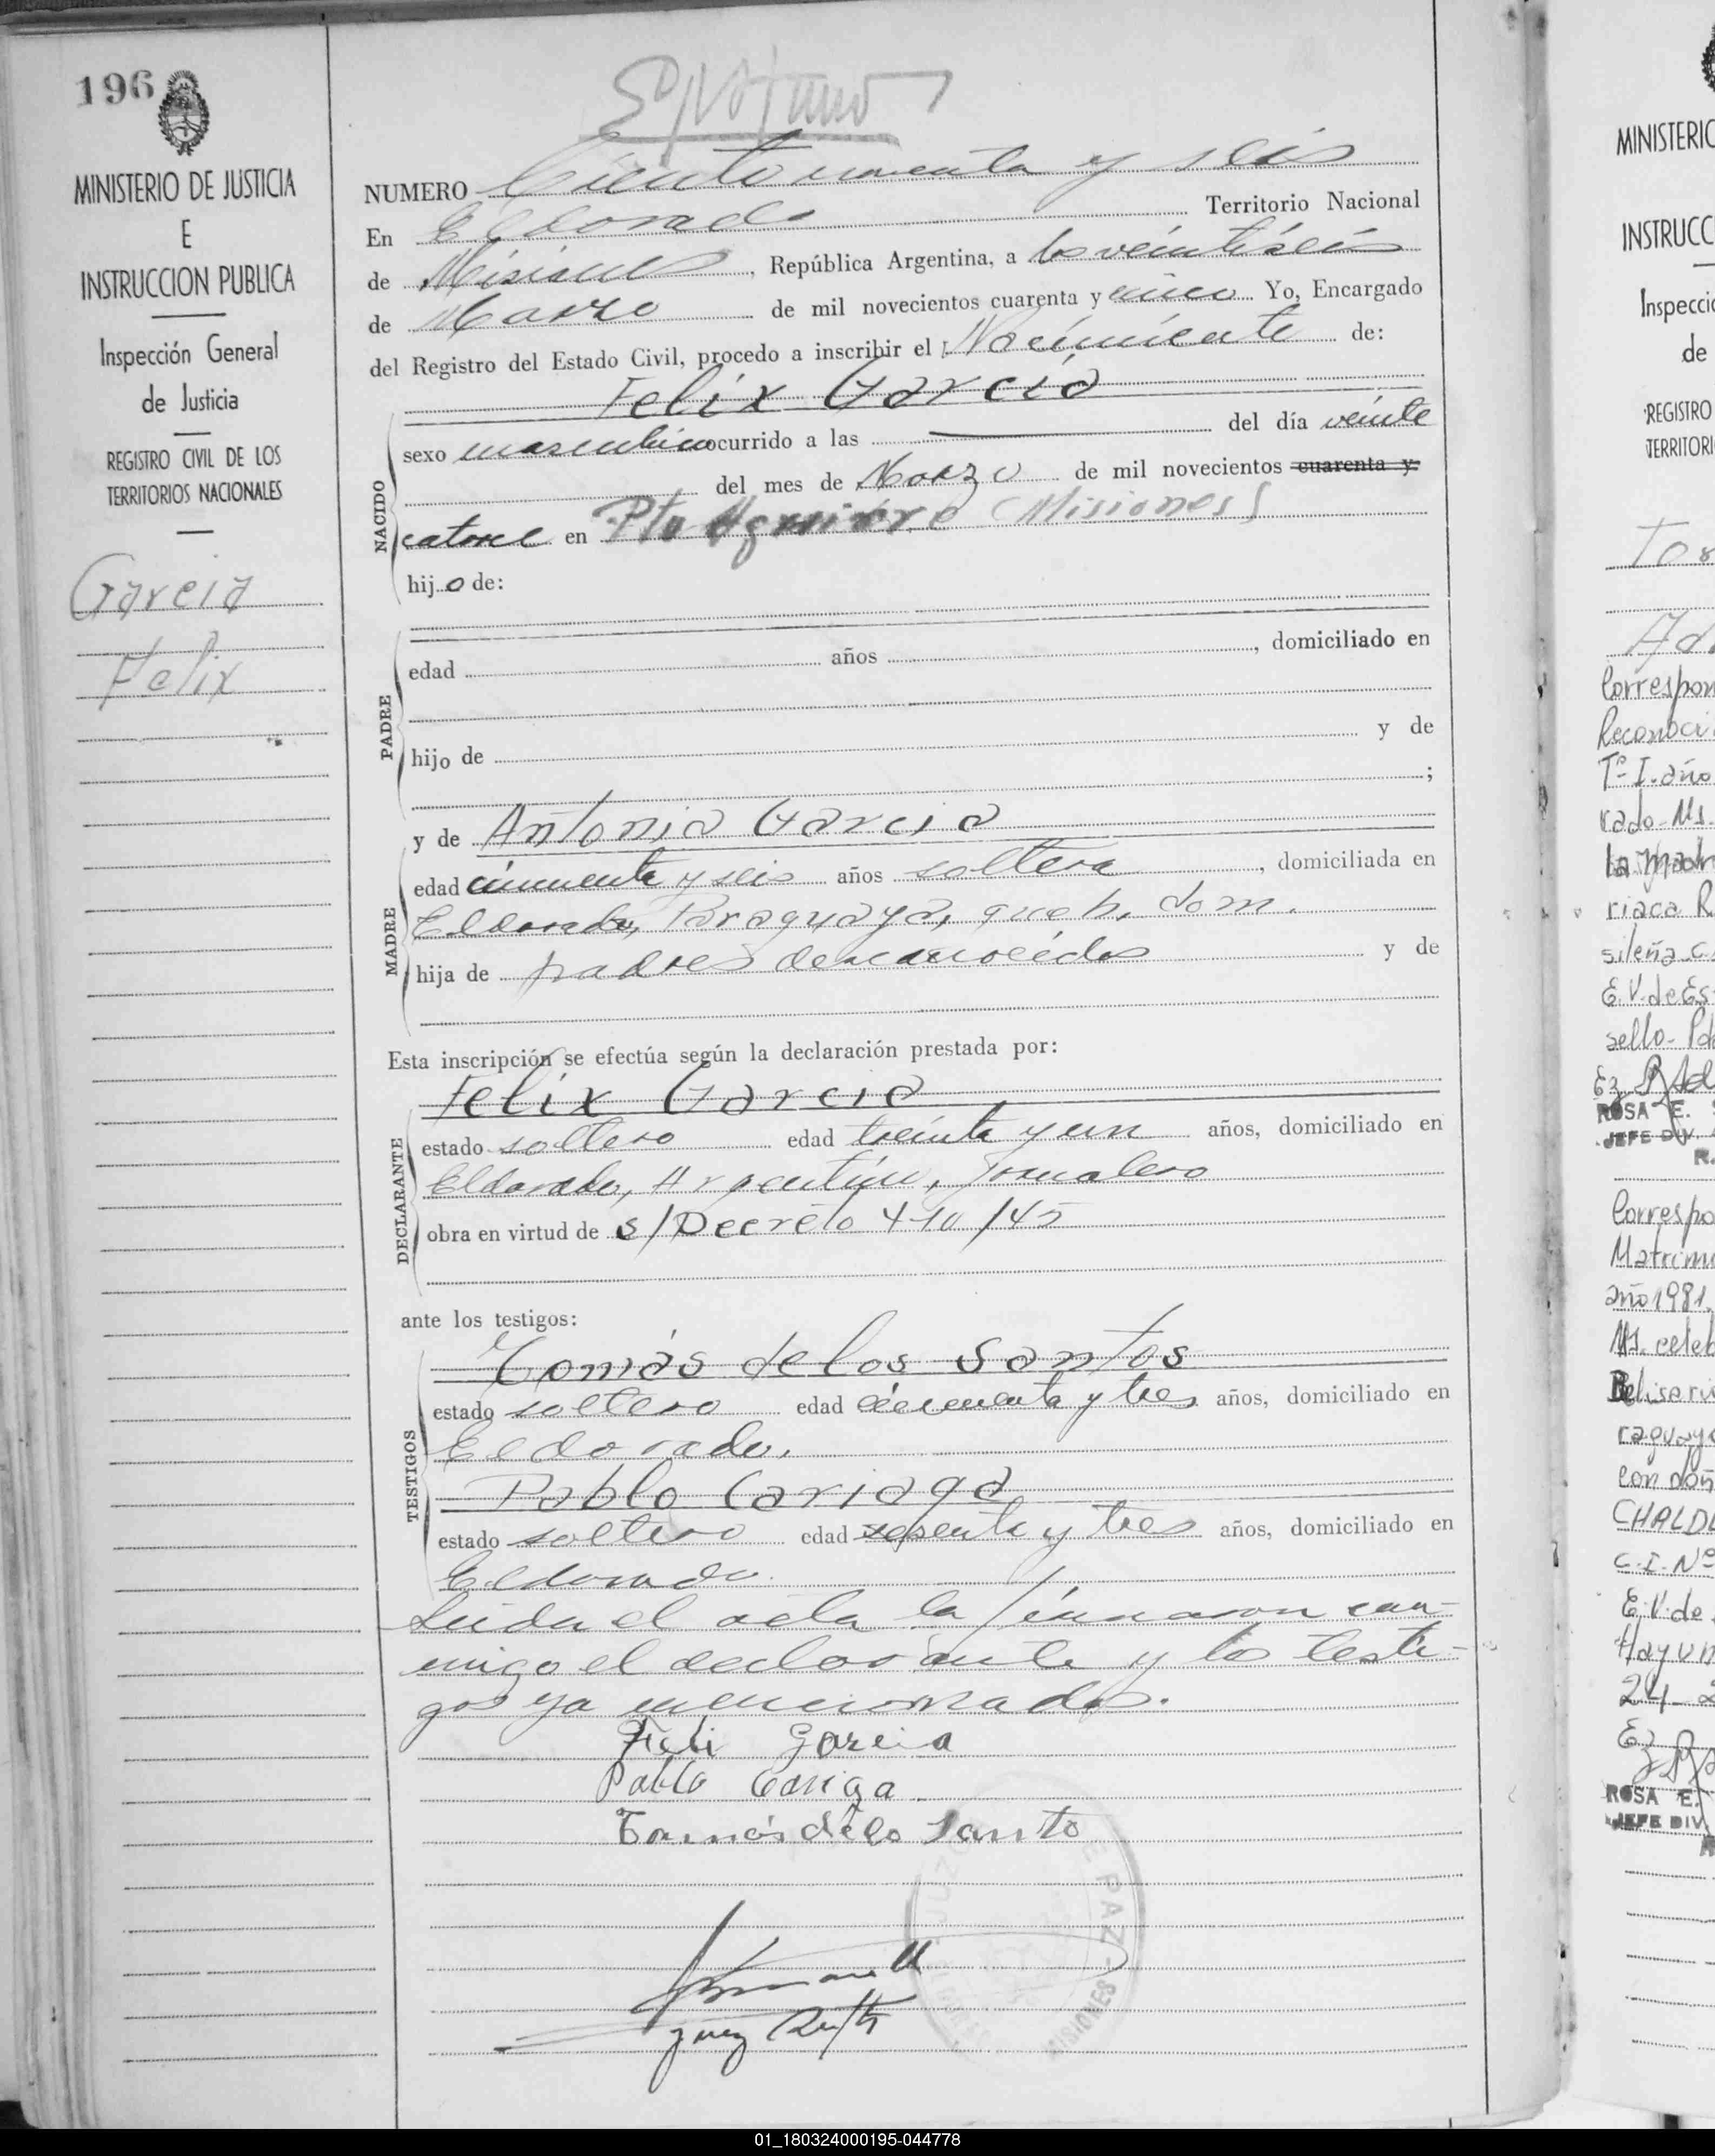 196
MINISTERIO DE JUSTICIA
E
INSTRUCCION PUBLICA
Inspección General
de Justicia
REGISTRO CIVIL DE LOS
TERRITORIOS NACIONALES
Garcia
Felix
NUMERO Ciento noventa y seis
En Eldorado Territorio Nacional
de Misiones, República Argentina, a los veintiseis
de Marzo de mil novecientos cuarenta y cinco Yo, Encargado
del Registro del Estado Civil, procedo a inscribir el Nacimiento de:
Felix Garcia
NACIDO
sexo masculino ocurrido a las del día veinte
del mes de Marzo de mil novecientos cuarenta y
catorce en Pto Aguirre (Misiones)
hijo de:
PADRE
edad años, domiciliado en
hijo de y de
;
y de Antonia Garcia
MADRE
edad cincuenta y seis años soltera, domiciliada en
Eldorado, Paraguaya, queh. dom.
hija de padres desconocidos y de
Esta inscripción se efectúa según la declaración prestada por:
Felix Garcia
DECLARANTE
estado soltero edad treinta y un años, domiciliado en
Eldorado, Argentino, Jornalero
obra en virtud de s/Decreto 410/45
ante los testigos:
Tomás de los Santos
TESTIGOS
estado soltero edad cincuenta y tres años, domiciliado en
Eldorado.
Pablo Cariaga
estado soltero edad sesenta y tres años, domiciliado en
Eldorado.
Leida el acta la firmaron con-
migo el declarante y los testi-
gos ya mencionados.
Feli Garcia
Pablo Cariga
Tomás delo Santo
E PAZ
MISIONES
MINISTERIO
INSTRUCC
Inspecció
de
REGISTRO
TERRITORI
Correspon
Reconoci
Tº I. año
rado-Ms.
la madr
riaca R.
sileña c.
E.V. de Es-
sello-
ROSA E.
JEFE DIV.
Correspo
Matrimo
año 1981.
Ms. celeb
Belisario
raguayo
con doñ
CHALD
C.I. Nº
E.V. de
Hay un
24-2
ROSA E.
JEFE DIV
01_180324000195-044778